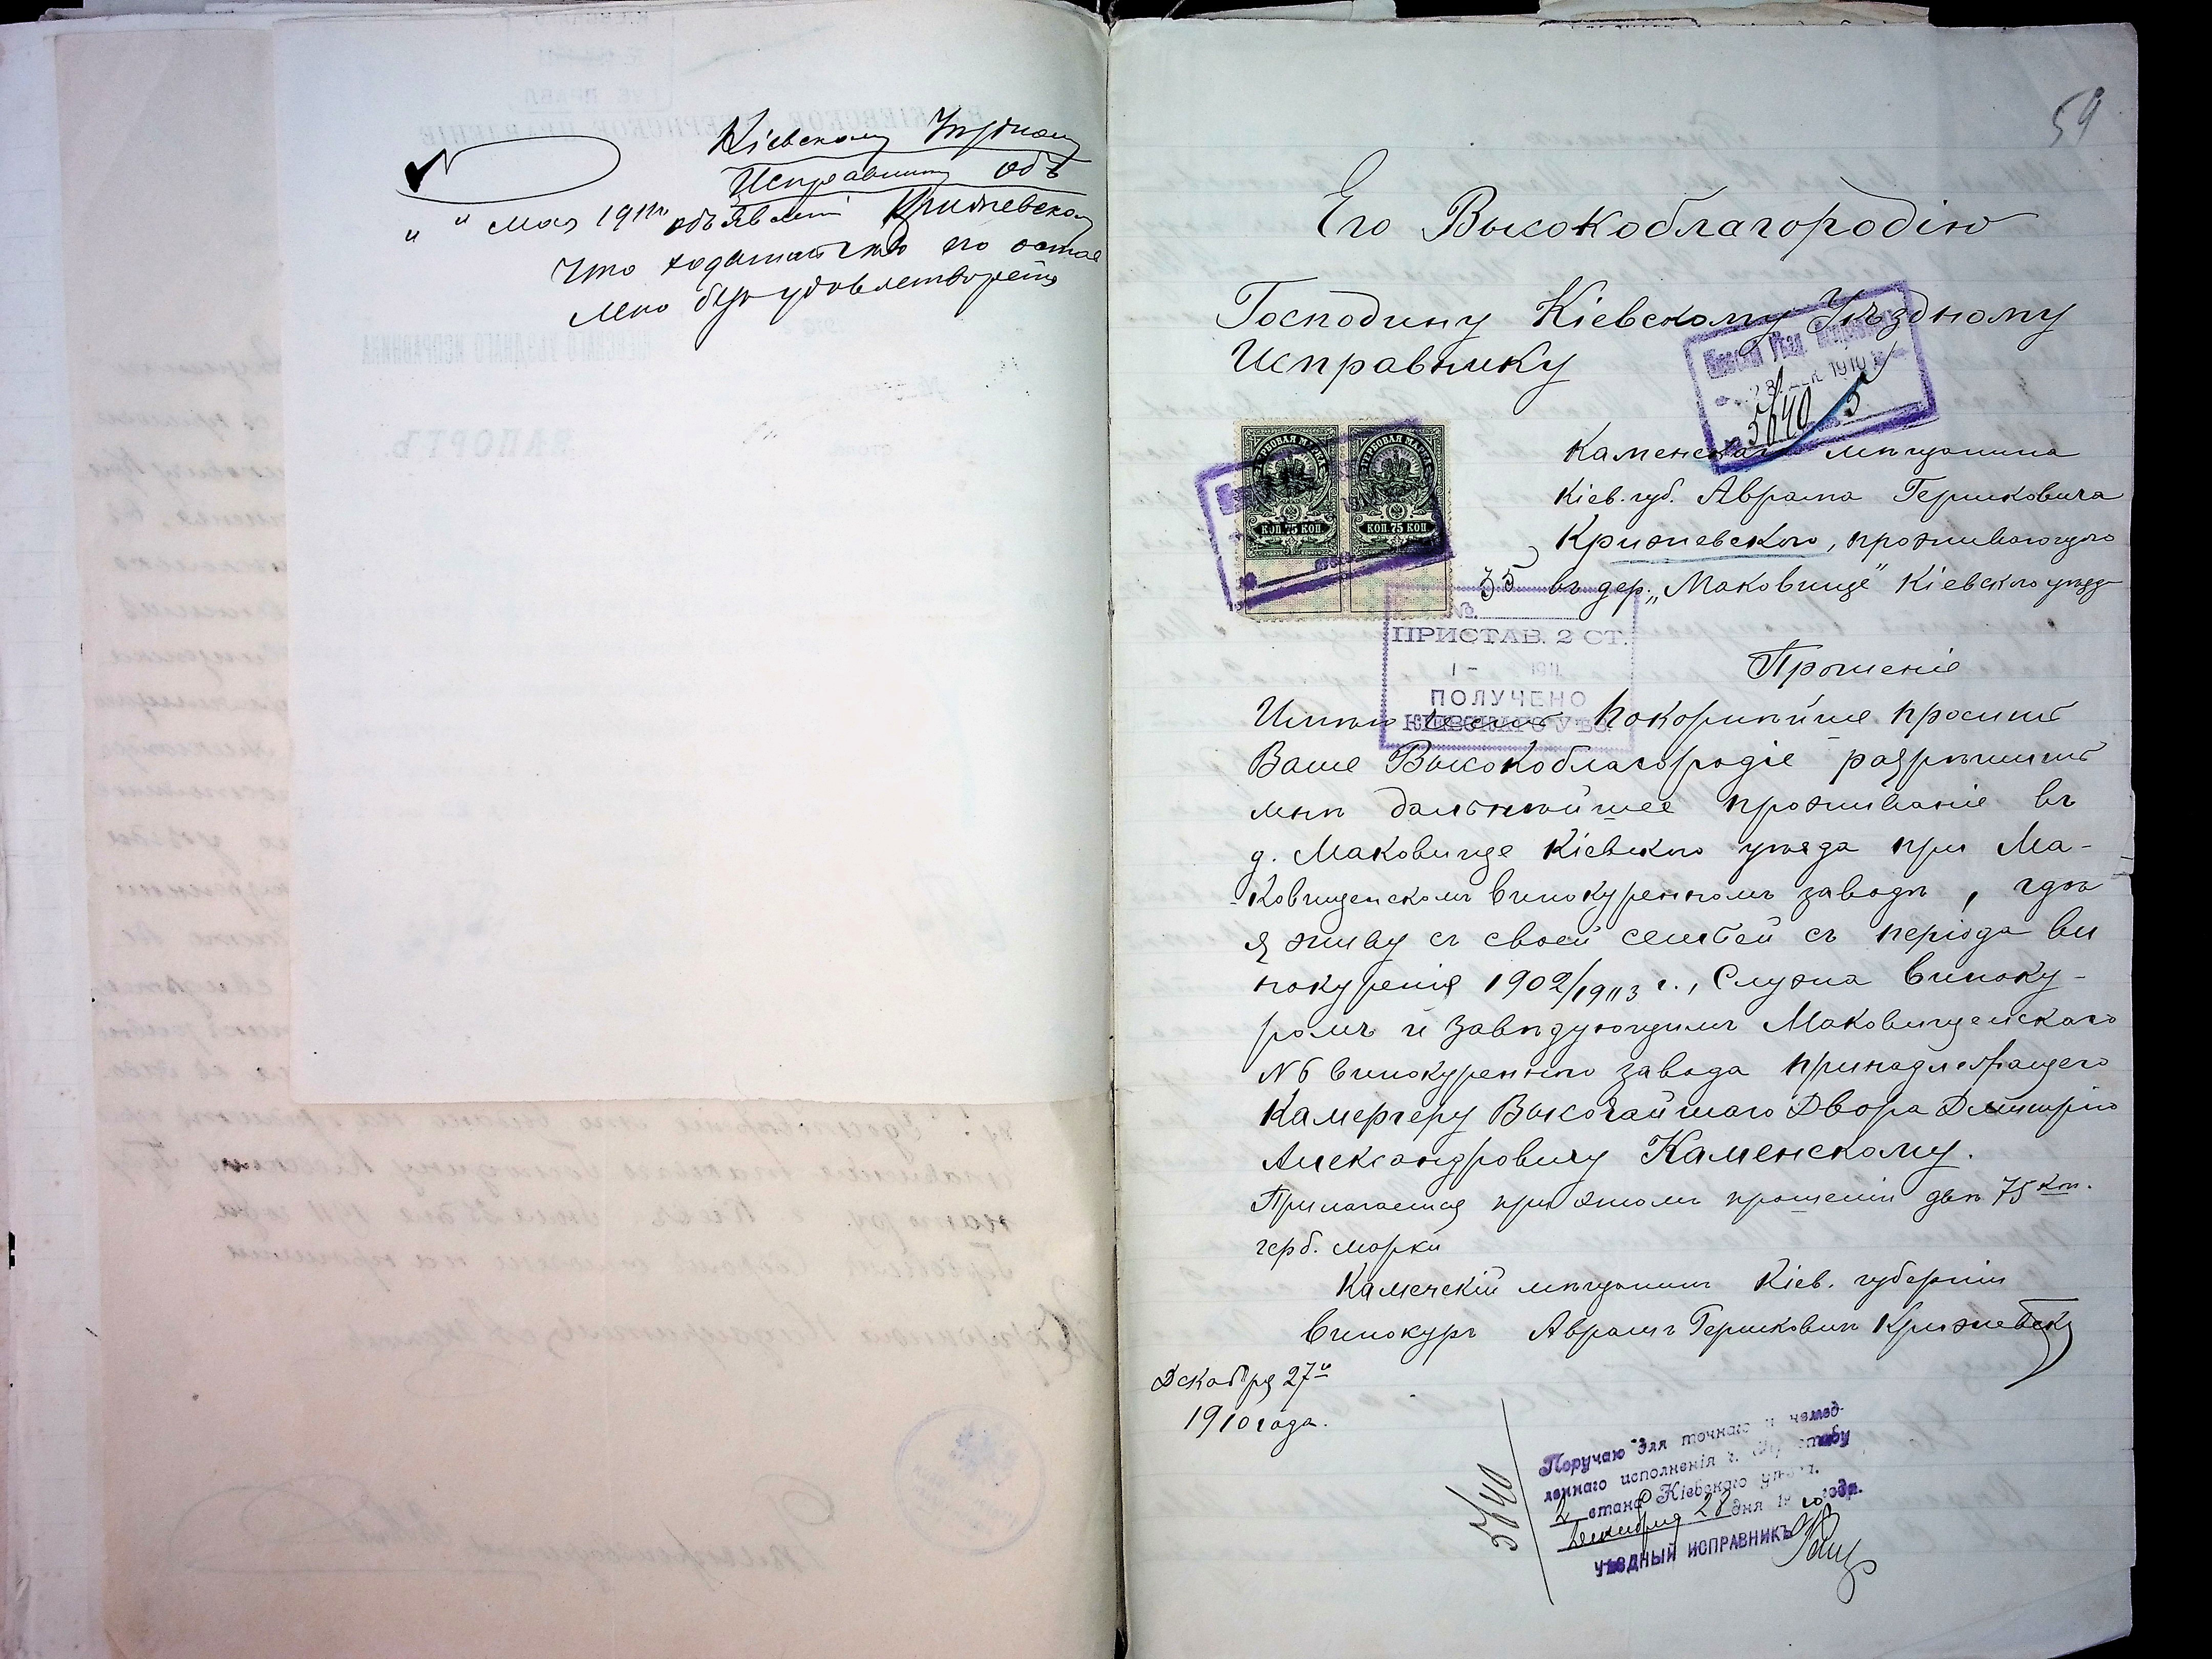 Кіевскому Уѣздному
Исправнику объ
" " мая 1911 г. объявленіи Крижевскому
что ходатайство его остав
лено безъ удовлетворенія
59
Его Высокоблагородію
Господину Кіевскому Уѣздному
Исправнику
1910
5640
Каменскаго мѣщанина
Кіев. губ. Аврама Гершковича
Крижевского, проживающего
въ дер. „Маковище" Кіевского уѣзда
ГЕРБОВАЯ МАРКА
ГЕРБОВАЯ МАРКА
КОП. 75 КОП
КОП. 75 КОП
35
№
ПРИСТАВ. 2 СТ.
1911
ПОЛУЧЕНО
КІЕВСКАГО У.
Прошеніе
Имѣю честь покорнѣйше просить
Ваше Высокоблагородіе разрѣшить
мнѣ дальнѣйшее проживаніе въ
д. Маковище Кіевского уѣзда при Ма-
ковищенскомъ винокуренномъ заводѣ, гдѣ
я живу съ своей семьей съ періода ви
нокуренія 1902/1903 г., служа виноку-
ромъ и завѣдующимъ Маковищенскаго
№ 6 винокуренного завода принадлежащего
Камергеру Высочайшаго Двора Дмитрію
Александровичу Каменскому.
Прилагается при этомъ прошеніи двѣ 75 коп.
герб. марки
Каменскій мѣщанинъ Кіев. губерніи
Винокуръ Аврамъ Гершковичъ Крижевскій
Декабря 27го
1910 года.
5640
Поручаю для точнаго и немед-
леннаго исполненія г. Приставу
2 стана Кіевскаго уѣзда.
Декабря 28 дня 1910 года.
УѢЗДНЫЙ ИСПРАВНИКЪ